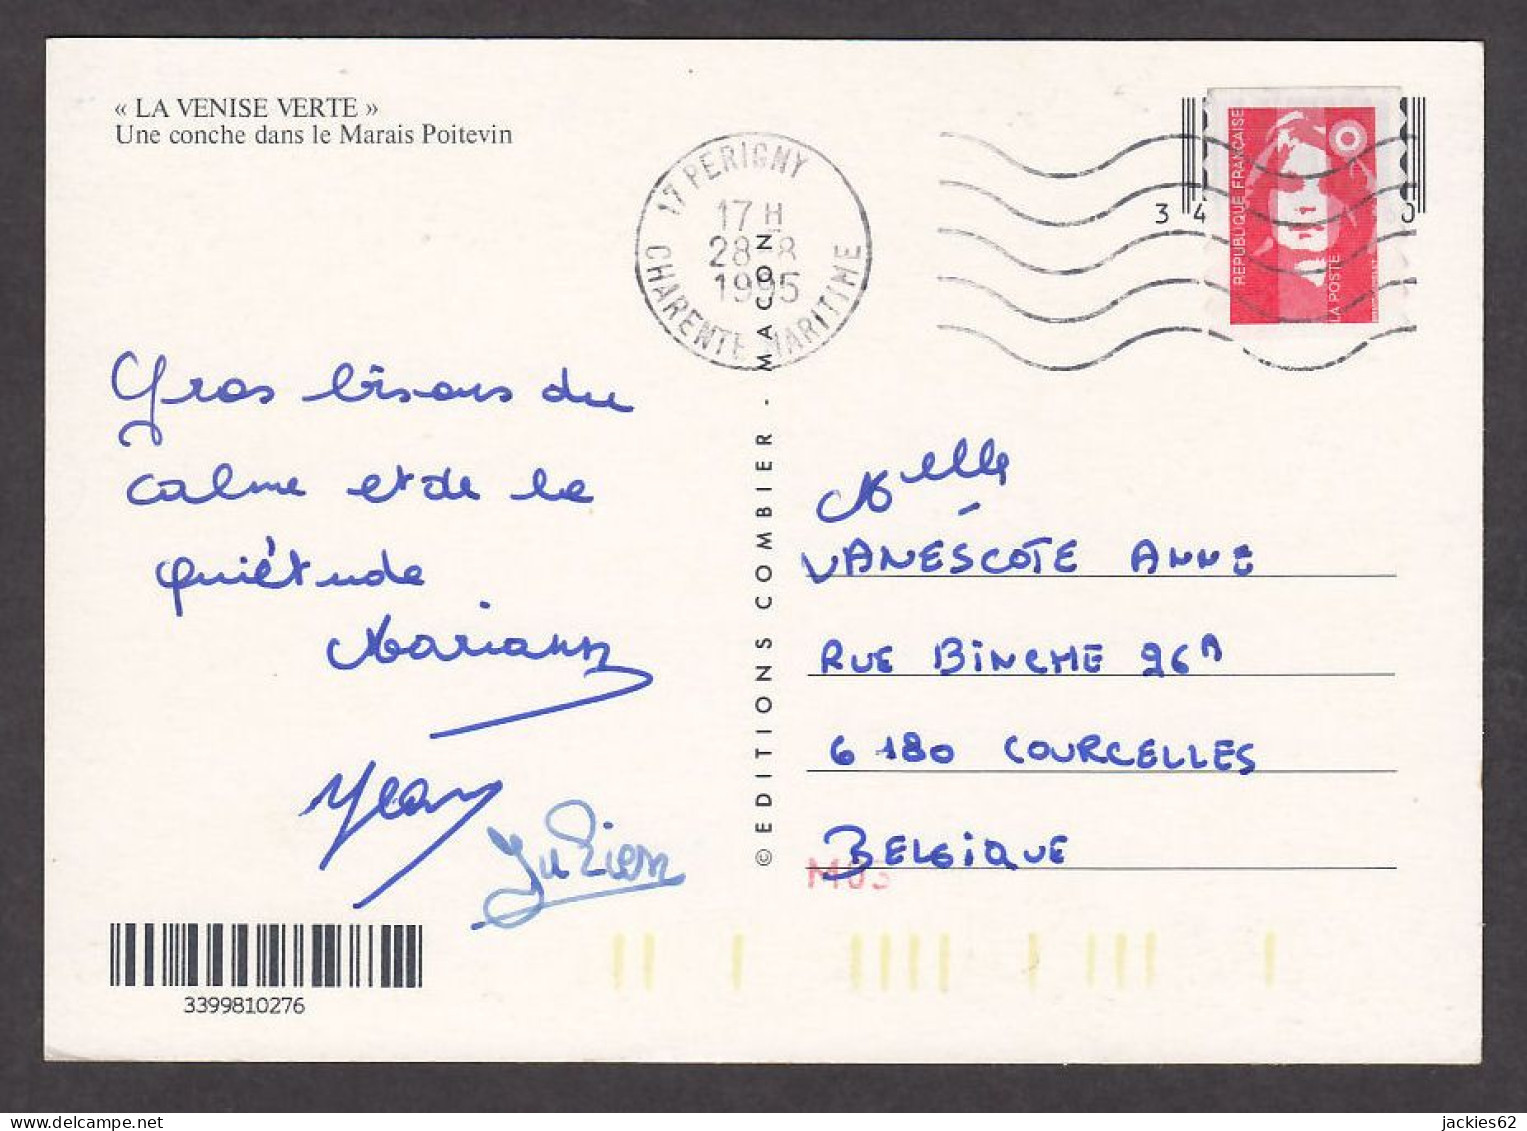 « LA VENISE VERTE »
Une conche dans le Marais Poitevin
17 PERIGNY
17 H
28-8
1995
CHARENTE MARITIME
34 0
REPUBLIQUE FRANÇAISE
LA POSTE
Gros bisous du
calme et de la
quiétude
Mariann
Jean
Julien
© EDITIONS COMBIER - MACON
Melle
VANESCOTE ANNE
RUE BINCHE 26A
6180 COURCELLES
BELGIQUE
M03
3399810276
jackies62